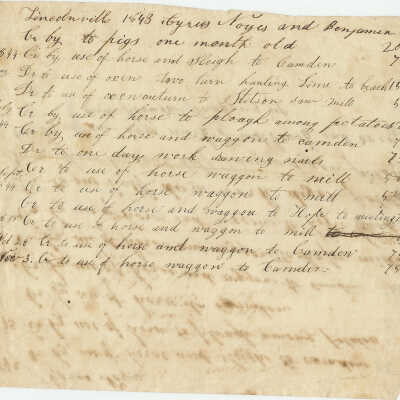 Lincolnville 1843 Cyrus Noyes and Benjamin
Cr by to pigs one month old 20
844 Cr by use of horse and sleigh to Camden 7
Dr to use of oxen two turn hauling Lime to beach 15
Dr to use of oxen return to Stilson saw mill 5
Cr by use of horse to plough among potatoes
44 Cr by use of horse and waggon to camden 7
Dr to one days work sawing nails 7
Sept. Cr to use of horse waggon to mill 5
44 Cr to use of horse waggon to mill 5
Cr to use of horse and waggon to Hope to meeting
Cr to use of horse and waggon to mill
20 Cr to use of horse and waggon to Camden 7
Nov 3. Cr to use of horse waggon to Camden 75